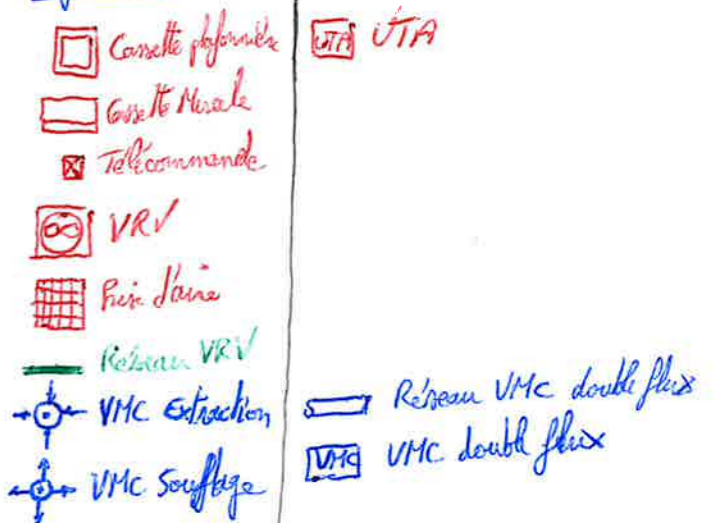 Cassette plafonnière
Cassette Murale
Télécommande
VRV
Prise d'aire
Réseau VRV
VMC Extraction
VMC Soufflage
UTA UTA
Réseau VMC double flux
VMC VMC double flux